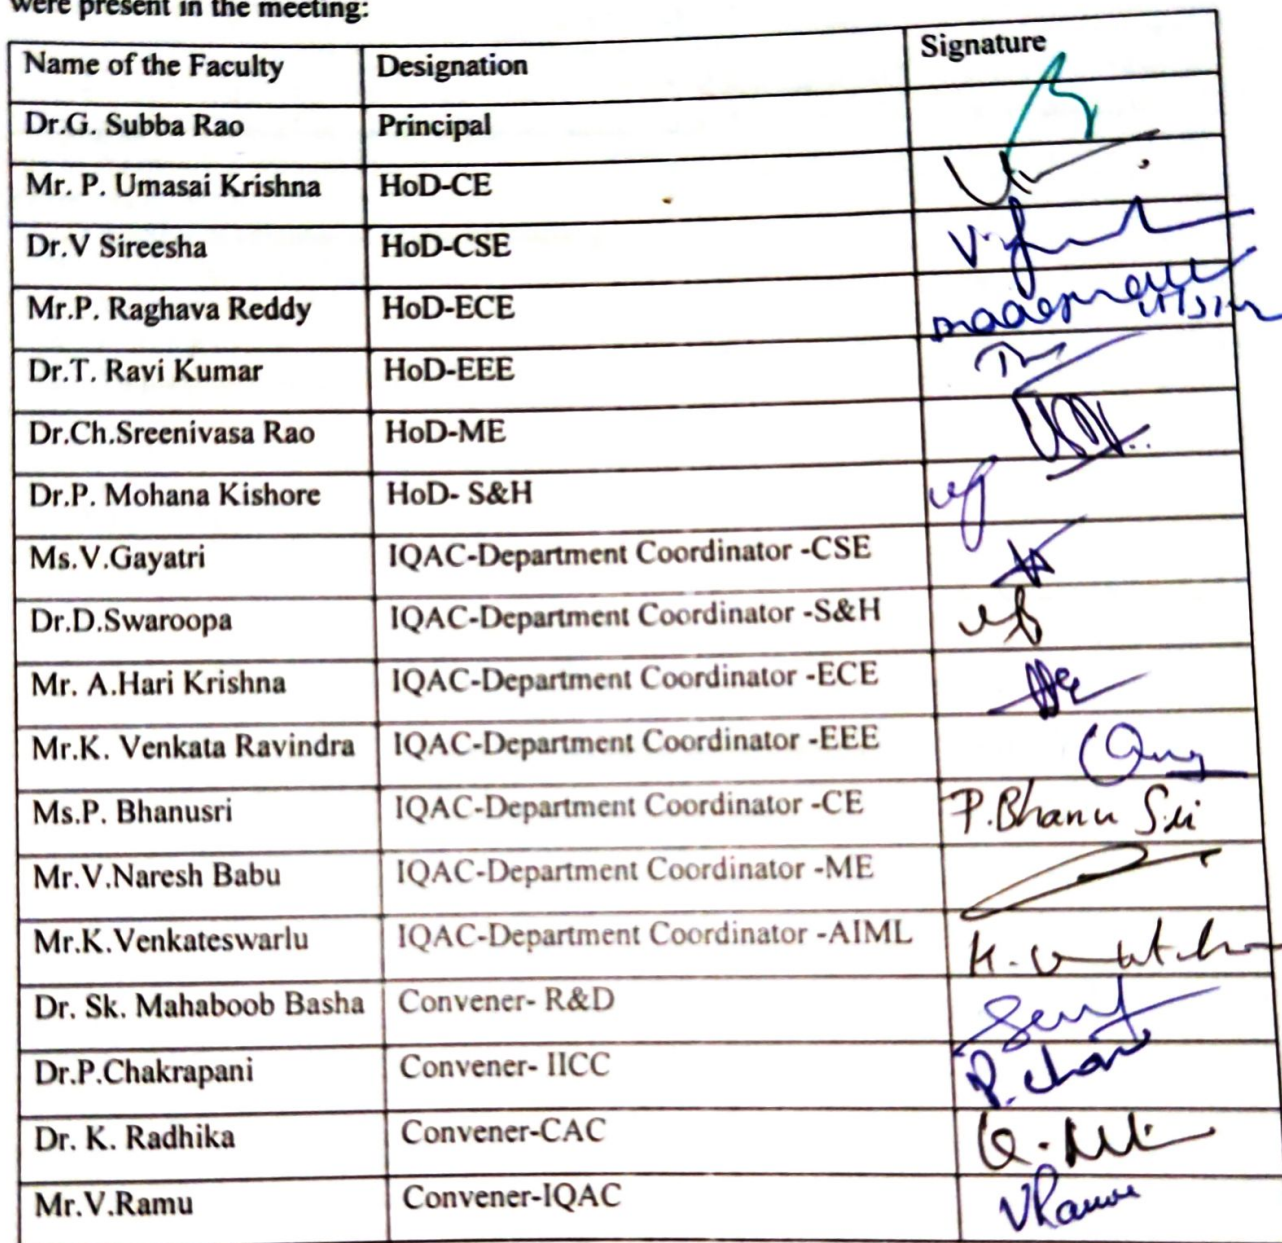 were present in the meeting:
Name of the Faculty Designation Signature
Dr.G. Subba Rao Principal
Mr. P. Umasai Krishna HoD-CE
Dr.V Sireesha HoD-CSE
Mr.P. Raghava Reddy HoD-ECE
Dr.T. Ravi Kumar HoD-EEE
Dr.Ch.Sreenivasa Rao HoD-ME
Dr.P. Mohana Kishore HoD- S&H
Ms.V.Gayatri IQAC-Department Coordinator -CSE
Dr.D.Swaroopa IQAC-Department Coordinator -S&H
Mr. A.Hari Krishna IQAC-Department Coordinator -ECE
Mr.K. Venkata Ravindra IQAC-Department Coordinator -EEE
Ms.P. Bhanusri IQAC-Department Coordinator -CE P.Bhanu Sri
Mr.V.Naresh Babu IQAC-Department Coordinator -ME
Mr.K.Venkateswarlu IQAC-Department Coordinator -AIML
Dr. Sk. Mahaboob Basha Convener- R&D
Dr.P.Chakrapani Convener- IICC
Dr. K. Radhika Convener-CAC
Mr.V.Ramu Convener-IQAC VRamu